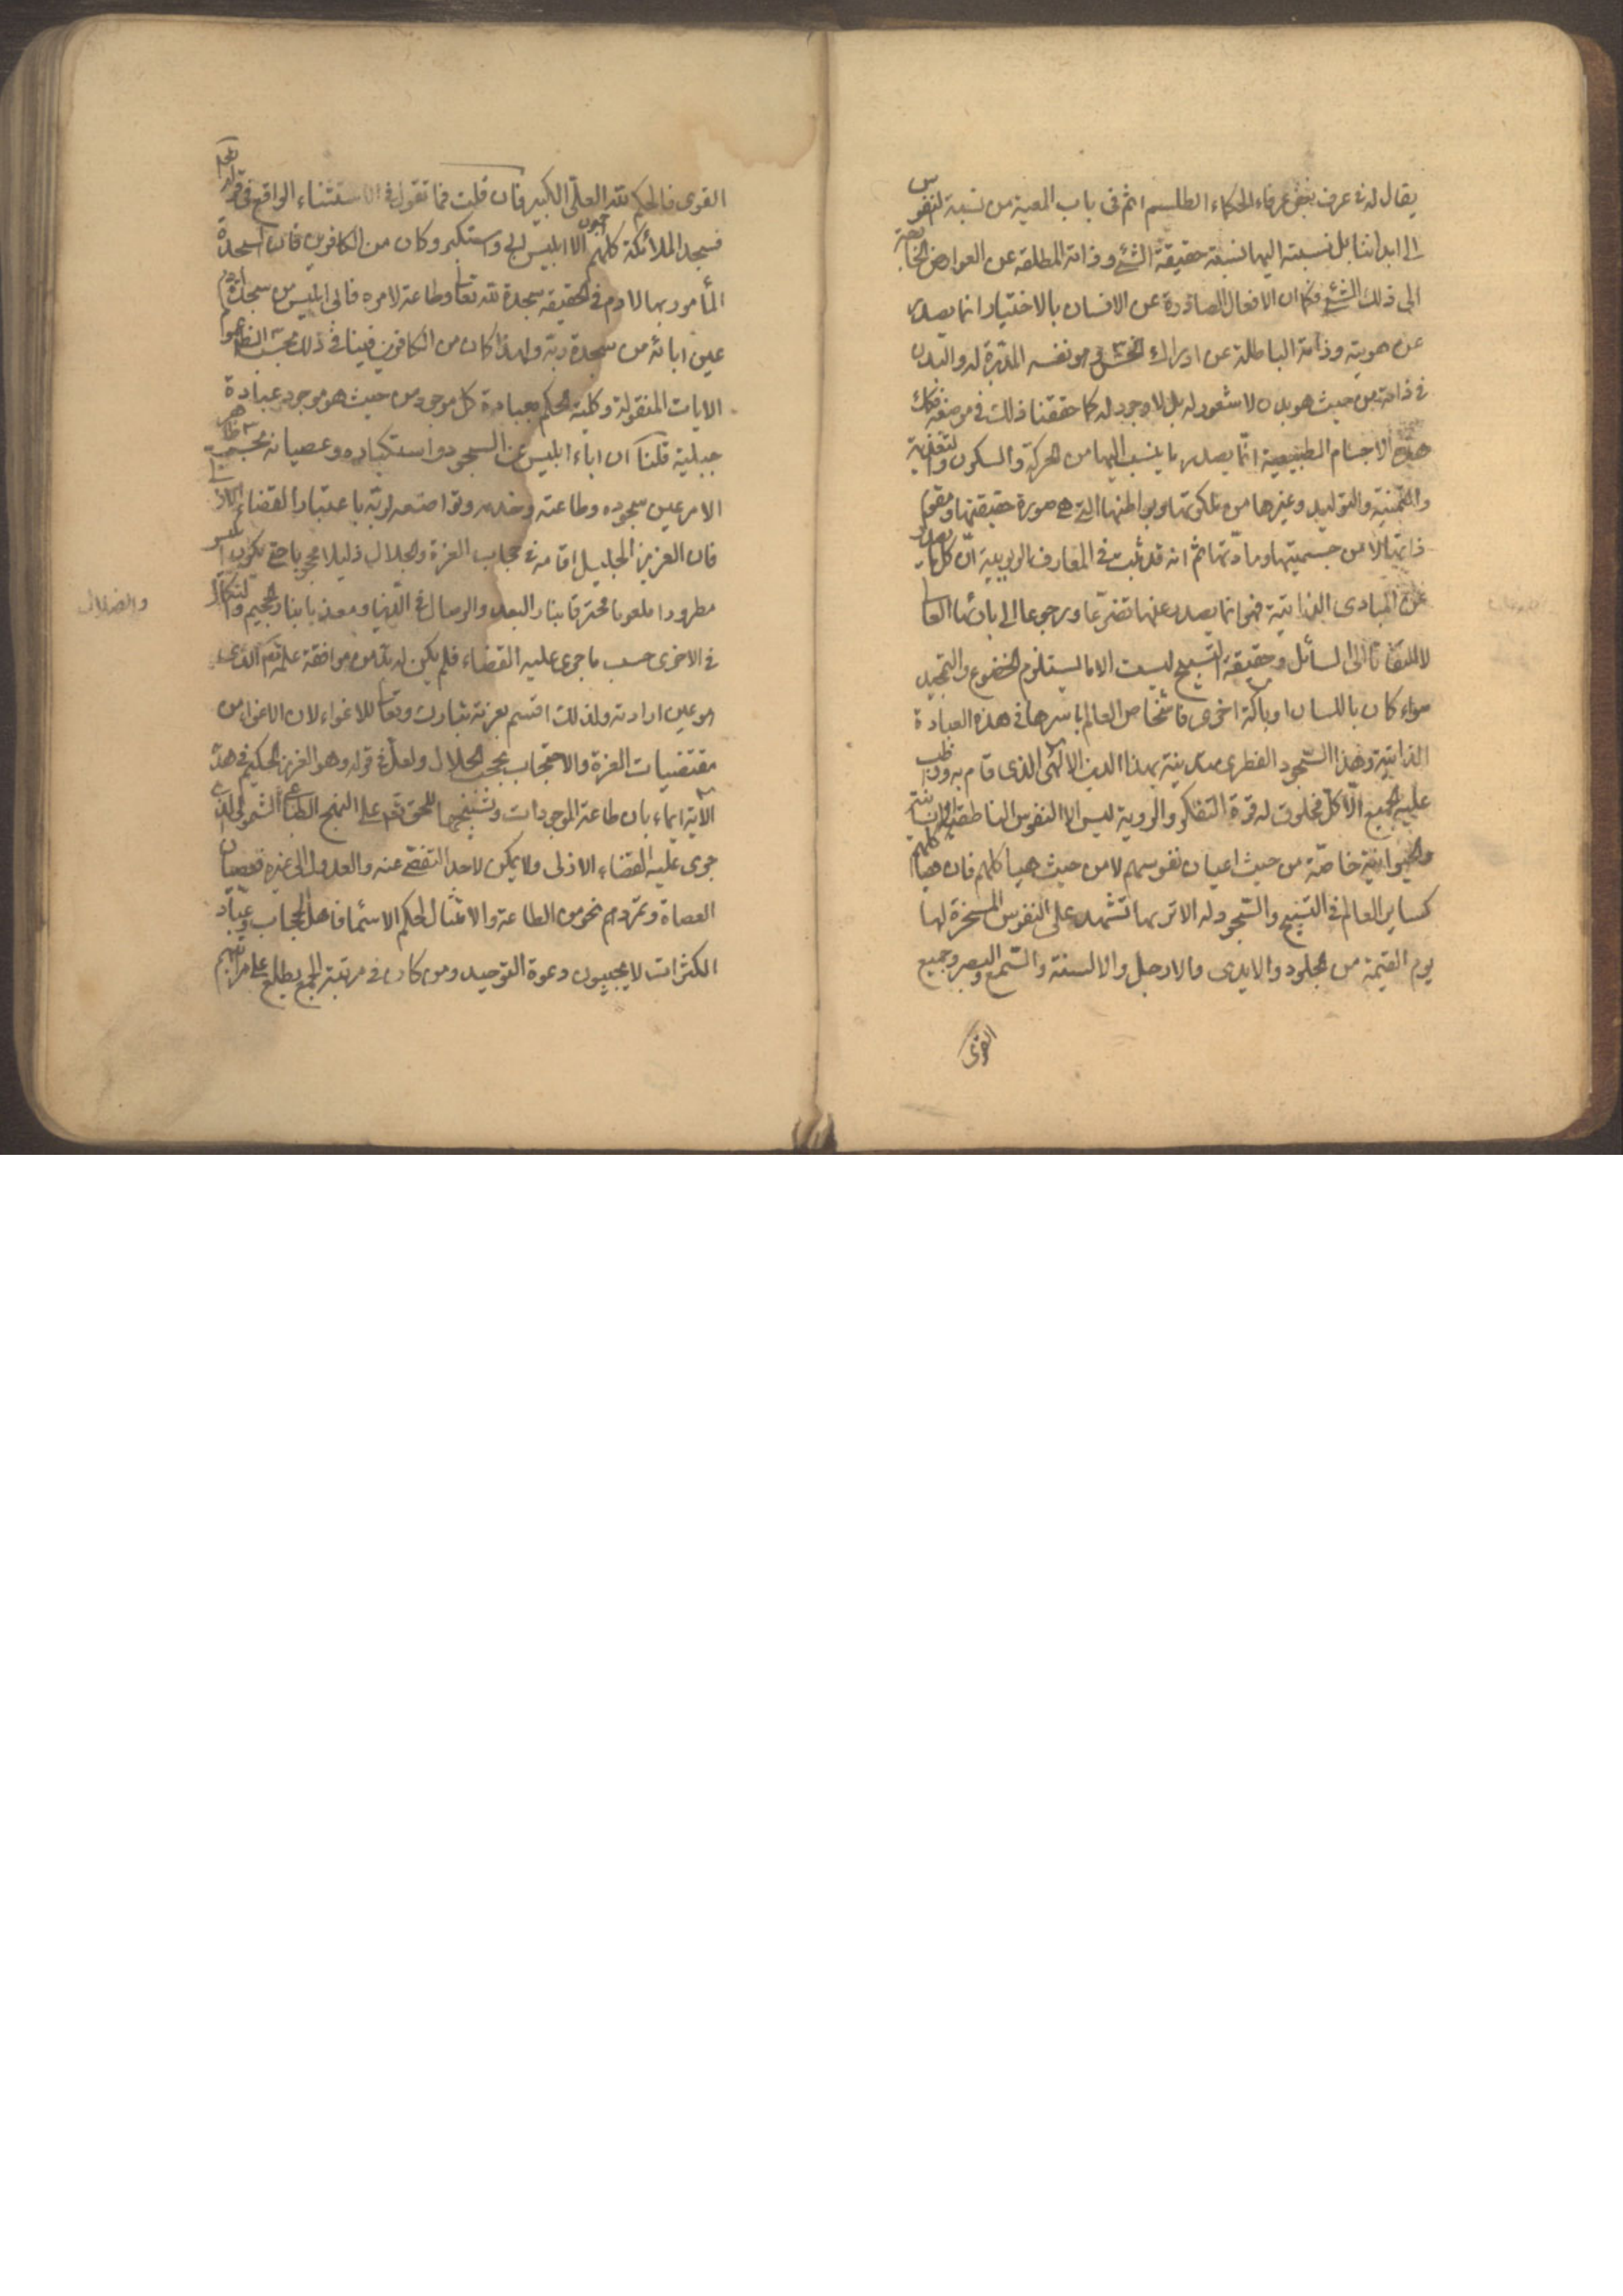 يقال له في عرف بعض عرفاء الحكماء الطلسم اتم في باب المعية من نسبة النفوس
الى ابداننا بل نسبته اليها نسبة حقيقة الشئ وذاته المطلقة عن العوارض الخاصة
الى ذلك الشئ فكما ان الافعال الصادرة عن الانسان بالاختيار انما يصدر
عن هويته وذاته الباطنة عن ادراك الحس هو نفسه المدبرة له والبدن
في ذاته من حيث هو بدن لا شعور له بل لا وجود له كما حققنا ذلك في موضعه فكك
هذه الاجسام الطبيعية انما يصدر ما ينسب اليها من الحركة والسكون والتغذية
والتنمية والتوليد وغيرها من ملكوتها وبواطنها التي هي صورة حقيقتها ومقوم
ذاتها لا من جسميتها ومادتها ثم انه قد ثبت في المعارف الربوبية ان كل ما يصدر
عن المبادى الذاتية فهو انما يصدر عنها تضرعا ورجوعا الى بارئها العا
لا التفاتا الى السافل وحقيقة التسبيح ليست الا ما يستلزم الخضوع والتمجيد
سواء كان باللسان او بالة اخرى فاشخاص العالم باسرها في هذه العبادة
الذاتية وهذا السجود الفطرى متدينة بهذا الدين الالهى الذى قام به وواظب
عليه الجميع الا كل مخلوق له قوة التفكر والروية ليس الا النفوس الناطقة الانسانية
والحيوانية خاصة من حيث اعيان نفوسهم لا من حيث هياكلهم فان هياكلهم
كساير العالم في التسبيح والسجود له الا تريها تشهد على النفوس المسخرة لها
يوم القيمة من الجلود والايدى والارجل والالسنة والسمع والبصر وجميع
القوى
القوى فالحكم لله العلى الكبير فان قلت فما تقول في الاستثناء الواقع في قوله تعالى
فسجد الملائكة كلهم اجمعون الا ابليس ابى واستكبر وكان من الكافرين فان السجدة
المأمور بها لادم في الحقيقة سجدة لله تعا وطاعة لامره فابى ابليس من سجدة ادم
عين ابائه من سجدة ربه ولهذا كان من الكافرين فينافي ذلك بحسب الظ عموم
الايات المنقولة وكلية الحكم بعبادة كل موجود من حيث هو موجود عبادة
جبلية قلنا ان اباء ابليس عن السجود واستكباره وعصيانه بحسب ظاهر
الامر عين سجوده وطاعته وخدمته وتواضعه لربه باعتبار القضاء الازلي
فان العزيز الجليل اقامه في حجاب العزة والجلال ذليلا محجوبا حتى يكون ابليس
مطرودا ملعونا محترقا بنار البعد والوصال في الدنيا ومعذبا بنار الجحيم والنكال
والضلال
في الاخرى حسب ما جرى عليه القضاء فلم يكن له بد من موافقة علمه تعم الذى
هو عين ارادته ولذلك اقسم بعزته تبارك وتعا للاغواء لان الاغواء من
مقتضيات العزة والاحتجاب بحجب الجلال ولعل في قوله وهو العزيز الحكيم في هذه
الاية ايماء بان طاعة الموجودات وتسبيحها للحق تعم على النهج الطباعي الشمولى الذى
جرى عليه القضاء الازلى ولا يمكن لاحد التفصى عنه والعدول الى غيره فعصيان
العصاة وتمردهم نحو من الطاعة والامتثال لحكم الاسماء فاهل الحجاب وعباد
الكثرات لا يجيبون دعوة التوحيد ومن كان في مرتبة الجمع يطلع على مراتبهم